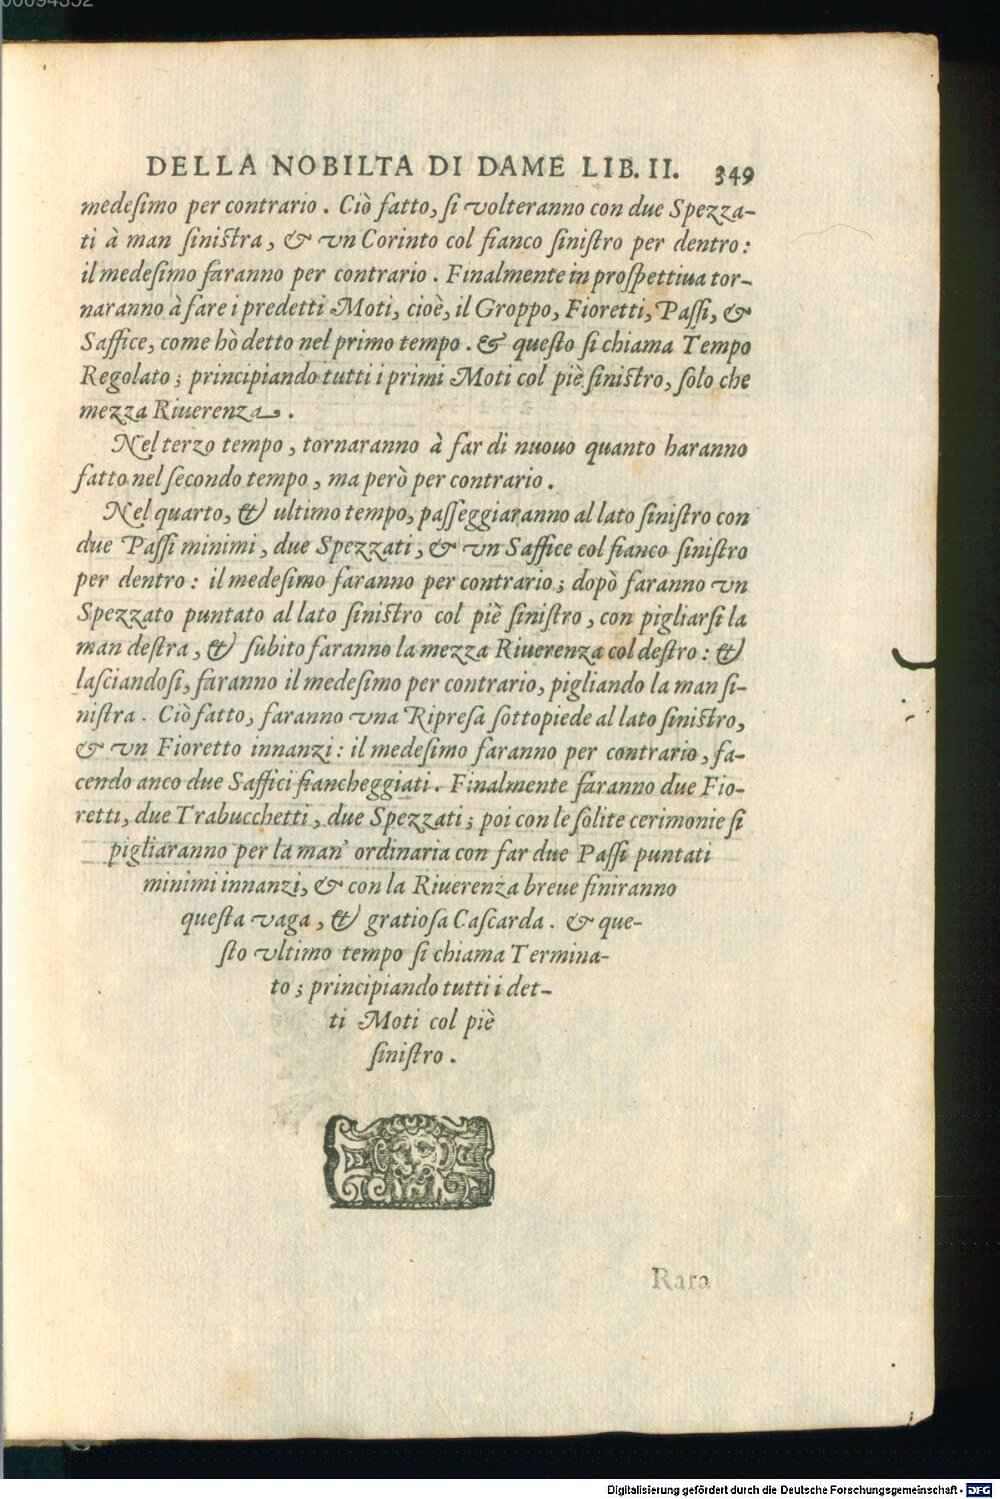 00094352
DELLA NOBILTA DI DAME LIB. II. 349
medeſimo per contrario. Ciò fatto, ſi volteranno con due Spezza-
ti à man ſiniſtra, & vn Corinto col fianco ſiniſtro per dentro:
il medeſimo faranno per contrario. Finalmente in proſpettiua tor-
naranno à fare i predetti Moti, cioè, il Groppo, Fioretti, Paſſi, &
Saffice, come hò detto nel primo tempo. & queſto ſi chiama Tempo
Regolato; principiando tutti i primi Moti col piè ſiniſtro, ſolo che
mezza Riuerenza.
Nel terzo tempo, tornaranno à far di nuouo quanto haranno
fatto nel ſecondo tempo, ma però per contrario.
Nel quarto, & ultimo tempo, paſſeggiaranno al lato ſiniſtro con
due Paſſi minimi, due Spezzati, & vn Saffice col fianco ſiniſtro
per dentro: il medeſimo faranno per contrario; dopò faranno vn
Spezzato puntato al lato ſiniſtro col piè ſiniſtro, con pigliarſi la
man deſtra, & ſubito faranno la mezza Riuerenza col deſtro: &
laſciandoſi, faranno il medeſimo per contrario, pigliando la man ſi-
niſtra. Ciò fatto, faranno vna Ripreſa ſottopiede al lato ſiniſtro,
& vn Fioretto innanzi: il medeſimo faranno per contrario, fa-
cendo anco due Saffici fiancheggiati. Finalmente faranno due Fio-
retti, due Trabucchetti, due Spezzati; poi con le ſolite cerimonie ſi
pigliaranno per la man' ordinaria con far due Paſſi puntati
minimi innanzi, & con la Riuerenza breue finiranno
queſta vaga, & gratioſa Caſcarda. & que-
ſto vltimo tempo ſi chiama Termina-
to; principiando tutti i det-
ti Moti col piè
ſiniſtro.
Rara
Digitalisierung gefördert durch die Deutsche Forschungsgemeinschaft - DFG